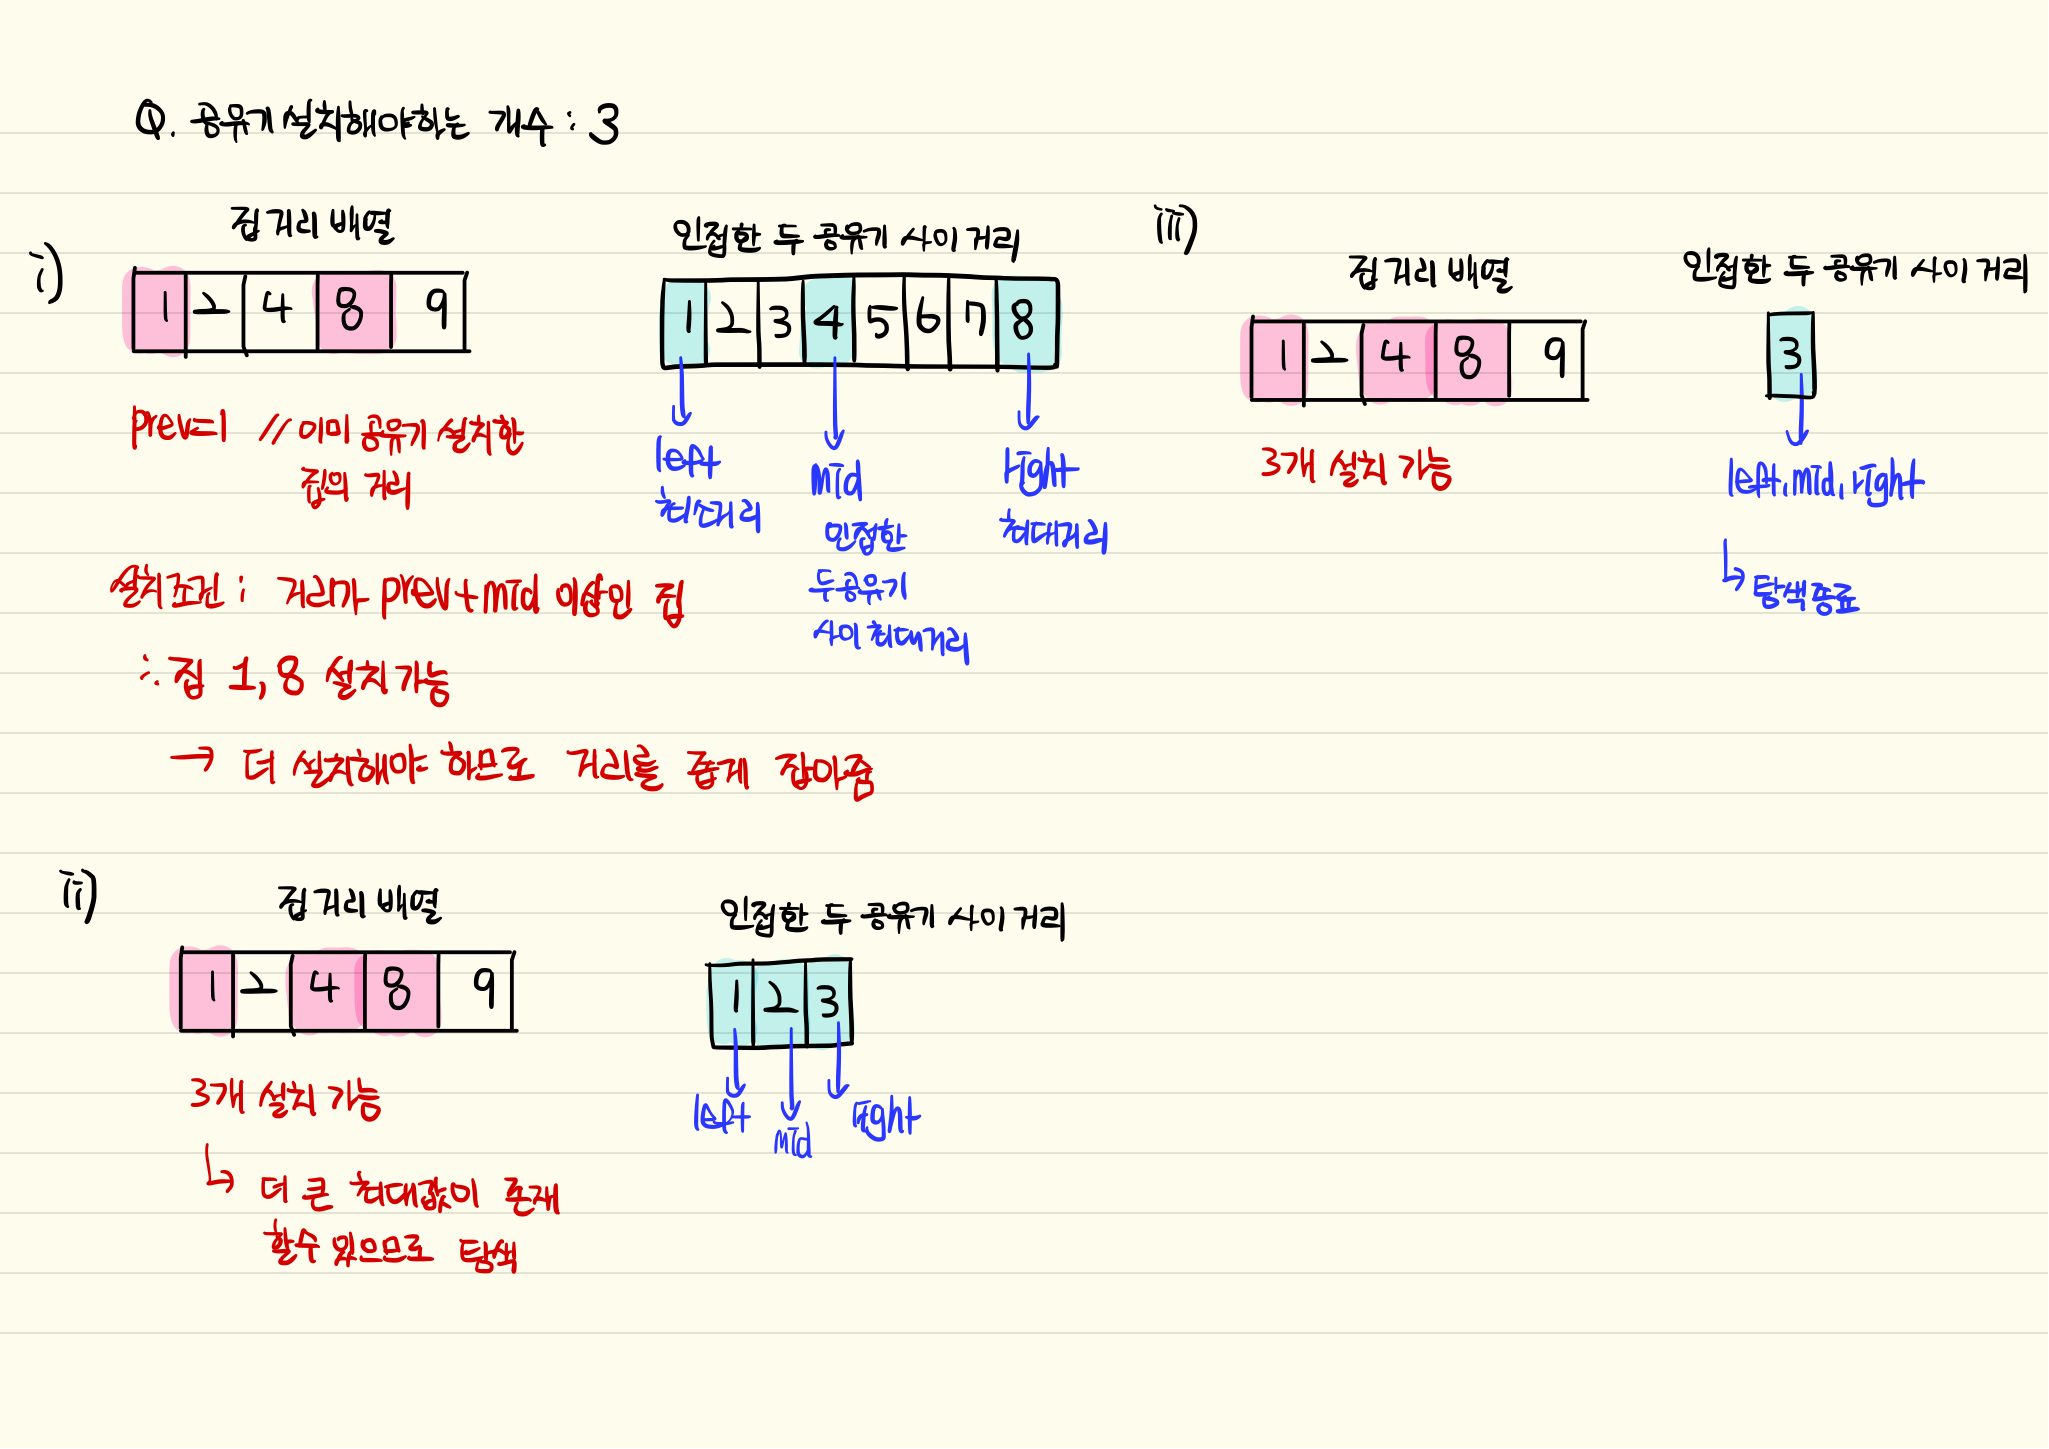 Q. 공유기 설치해야하는 개수 : 3
i)
집 거리 배열
1 2 4 8 9
prev=1 // 이미 공유기 설치한
집의 거리
인접한 두 공유기 사이 거리
1 2 3 4 5 6 7 8
left
최소거리
mid
인접한
두 공유기
사이 최대거리
right
최대거리
설치조건 : 거리가 prev+mid 이상인 집
∴ 집 1, 8 설치 가능
→ 더 설치해야 하므로 거리를 좁게 잡아줌
ii)
집 거리 배열
1 2 4 8 9
3개 설치 가능
↳ 더 큰 최대값이 존재
할수 있으므로 탐색
인접한 두 공유기 사이 거리
1 2 3
left
mid
right
iii)
집 거리 배열
1 2 4 8 9
3개 설치 가능
인접한 두 공유기 사이 거리
3
left, mid, right
↳ 탐색종료